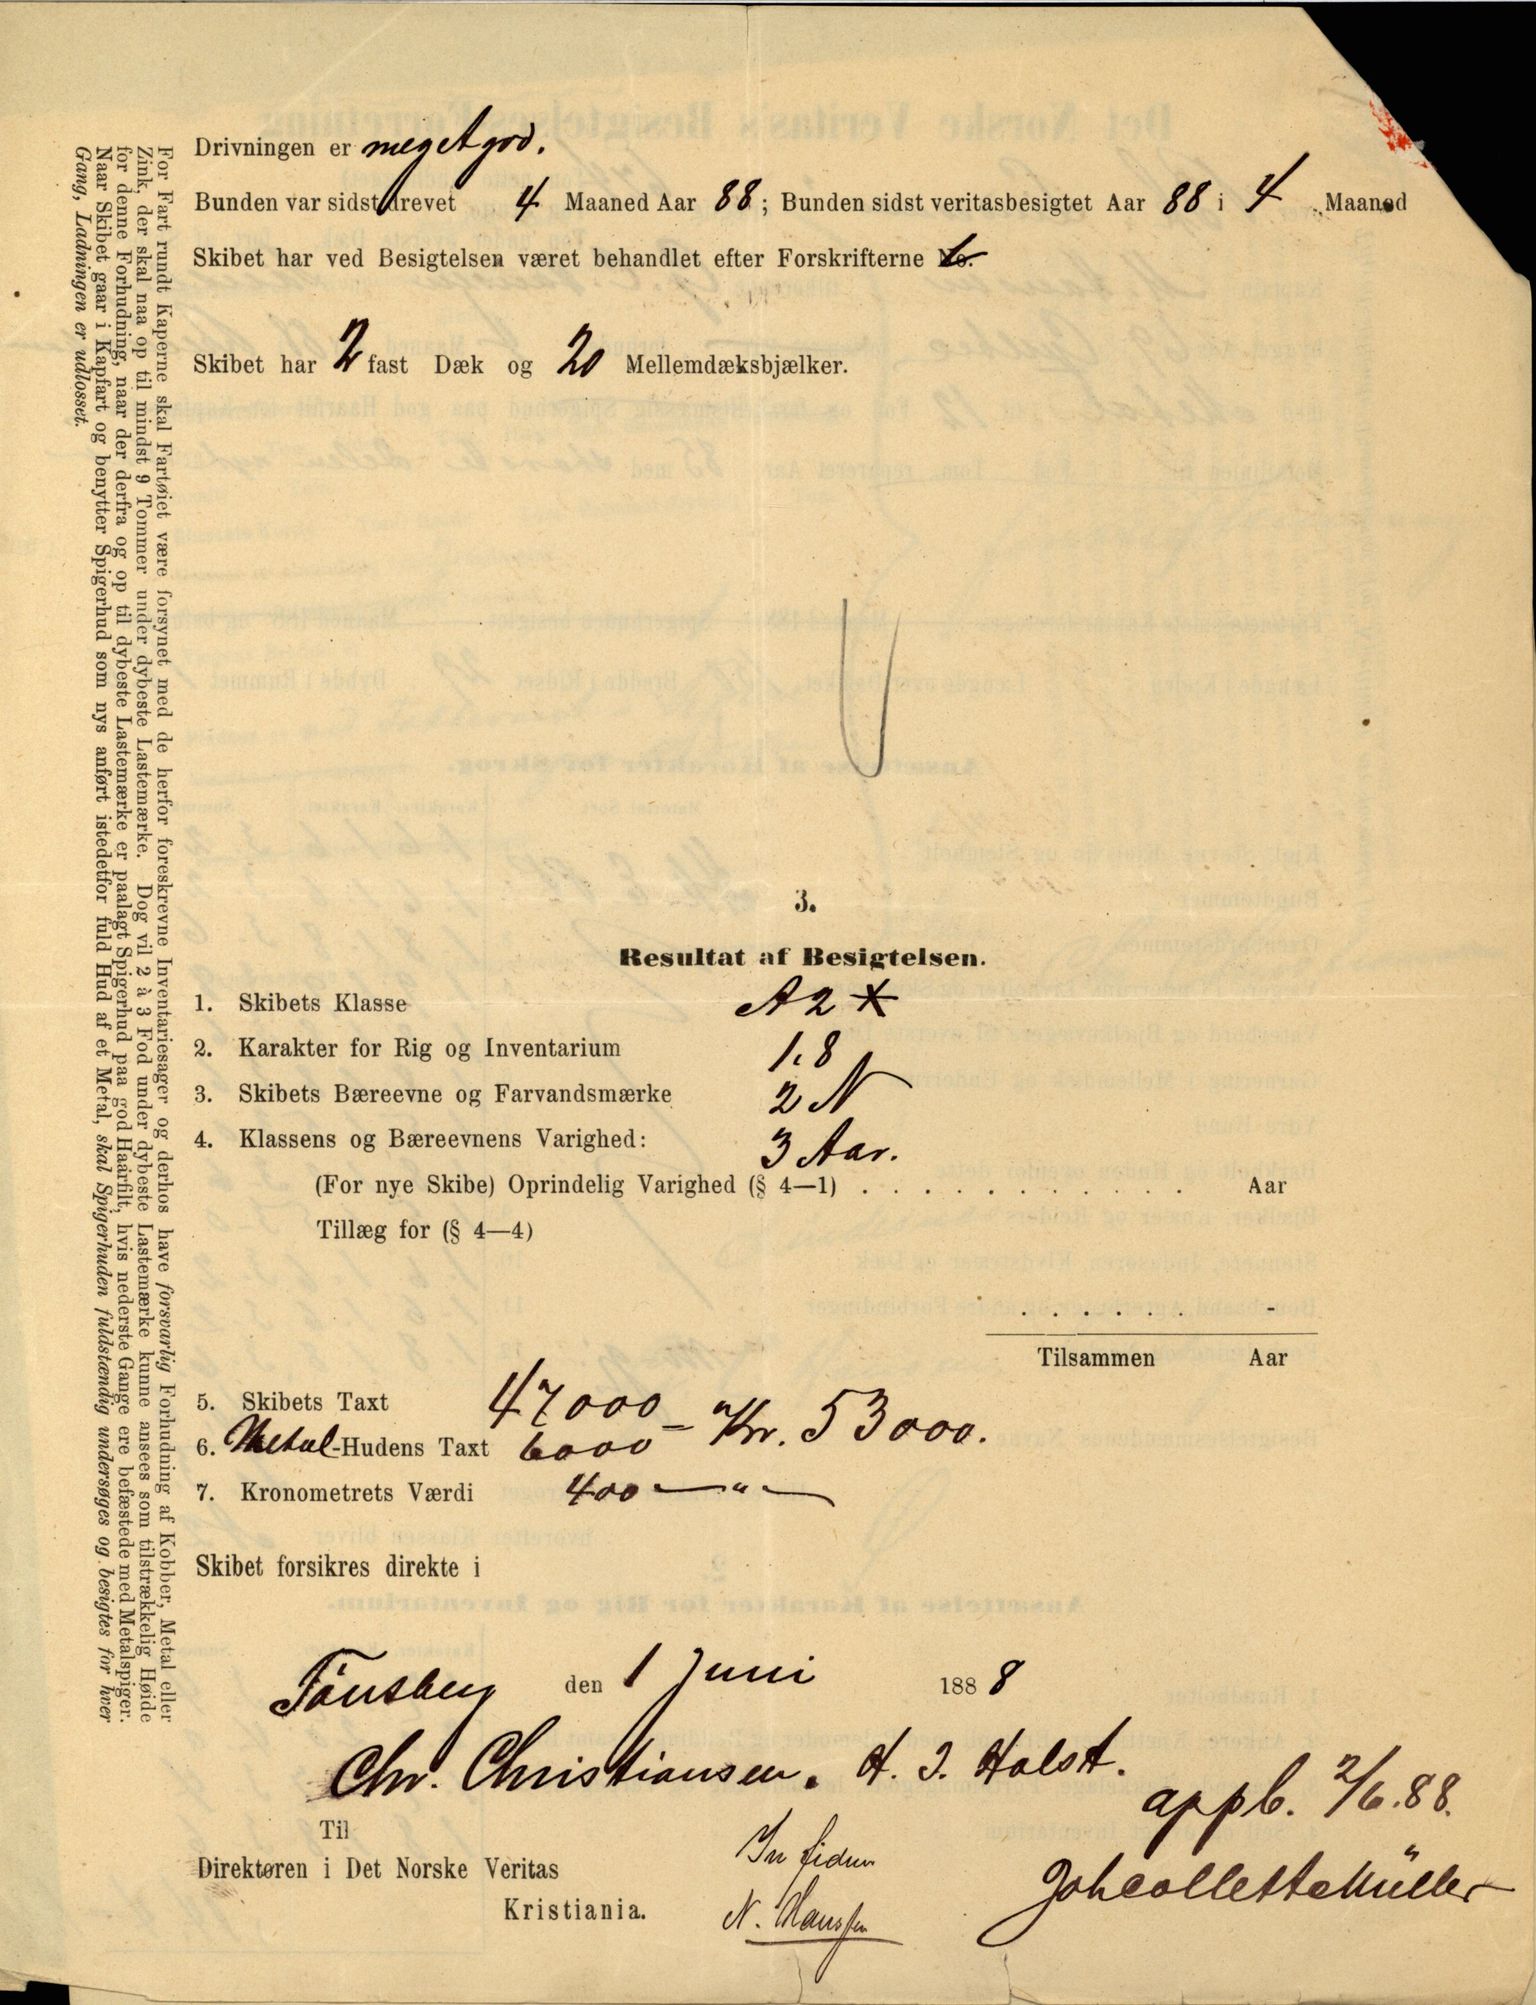 Drivningen er meget god.
Bunden var sidst drevet 4 Maaned Aar 88; Bunden sidst veritasbesigtet Aar 88 i 4 Maaned
Skibet har ved Besigtelsen været behandlet efter Forskrifterne No.
Skibet har 2 fast Dæk og 20 Mellemdæksbjælker.
3.
Resultat af Besigtelsen.
1. Skibets Klasse A 2 *
2. Karakter for Rig og Inventarium 1.8
3. Skibets Bæreevne og Farvandsmærke 2 N
4. Klassens og Bæreevnens Varighed: 3 Aar.
(For nye Skibe) Oprindelig Varighed (§ 4—1) . . . . . . . . . . . Aar
Tillæg for (§ 4—4)
. . . . . . . -
Tilsammen Aar
5. Skibets Taxt 47000
6. Metal-Hudens Taxt 6000 — Kr. 53000.
7. Kronometrets Værdi 400 — " —
Skibet forsikres direkte i
Tönsberg den 1 Juni 1888
Chr. Christiansen. H. J. Holst.
appb. 2/6.88.
Til
Direktøren i Det Norske Veritas
Kristiania.
In fidem
N. Hanssen
Joh Collett Müller
For Fart rundt Kaperne skal Fartøiet være forsynet med de herfor foreskrevne Inventariesager og derhos have forsvarlig Forhudning af Kobber, Metal eller
Zink, der skal naa op til mindst 9 Tommer under dybeste Lastemærke. Dog vil 2 à 3 Fod under dybeste Lastemærke kunne ansees som tilstrækkelig Høide
for denne Forhudning, naar der derfra og op til dybeste Lastemærke er paalagt Spigerhud paa god Haarfilt, hvis nederste Gange ere befæstede med Metalspiger.
Naar Skibet gaar i Kapfart og benytter Spigerhud som nys anført istedetfor fuld Hud af et Metal, skal Spigerhuden fuldstændig undersøges og besigtes for hver
Gang, Ladningen er udlosset.